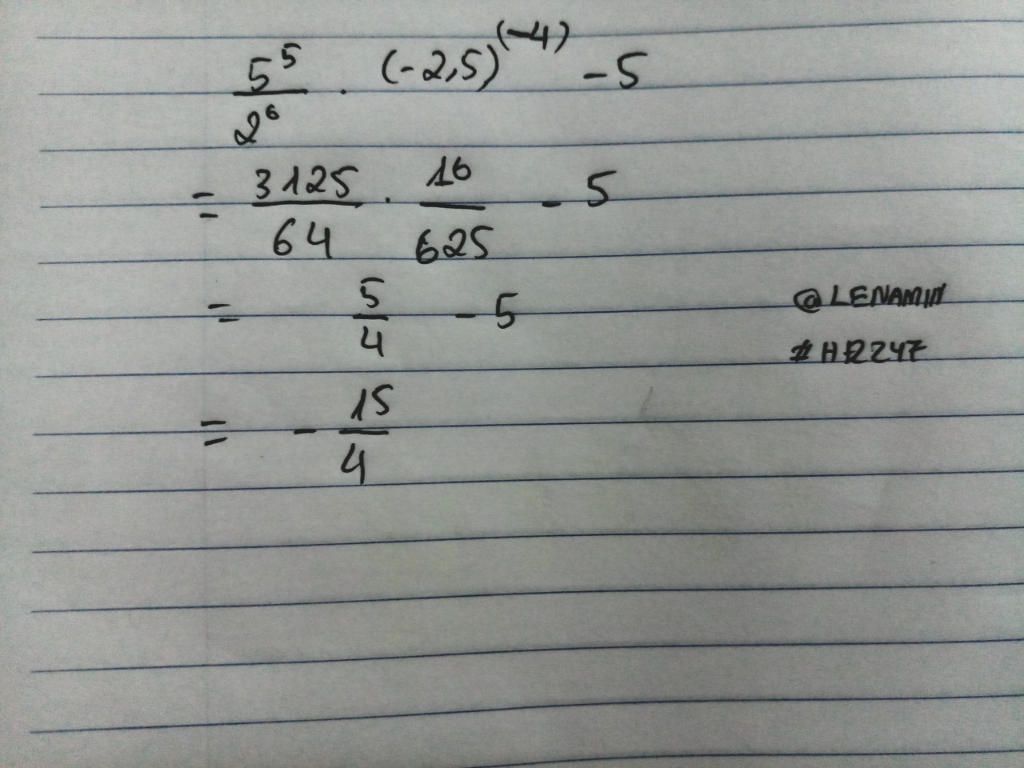 5⁵/2⁶ · (-2,5)⁽⁻⁴⁾ - 5
= 3125/64 · 16/625 - 5
= 5/4 - 5
@LENAMIN
= - 15/4